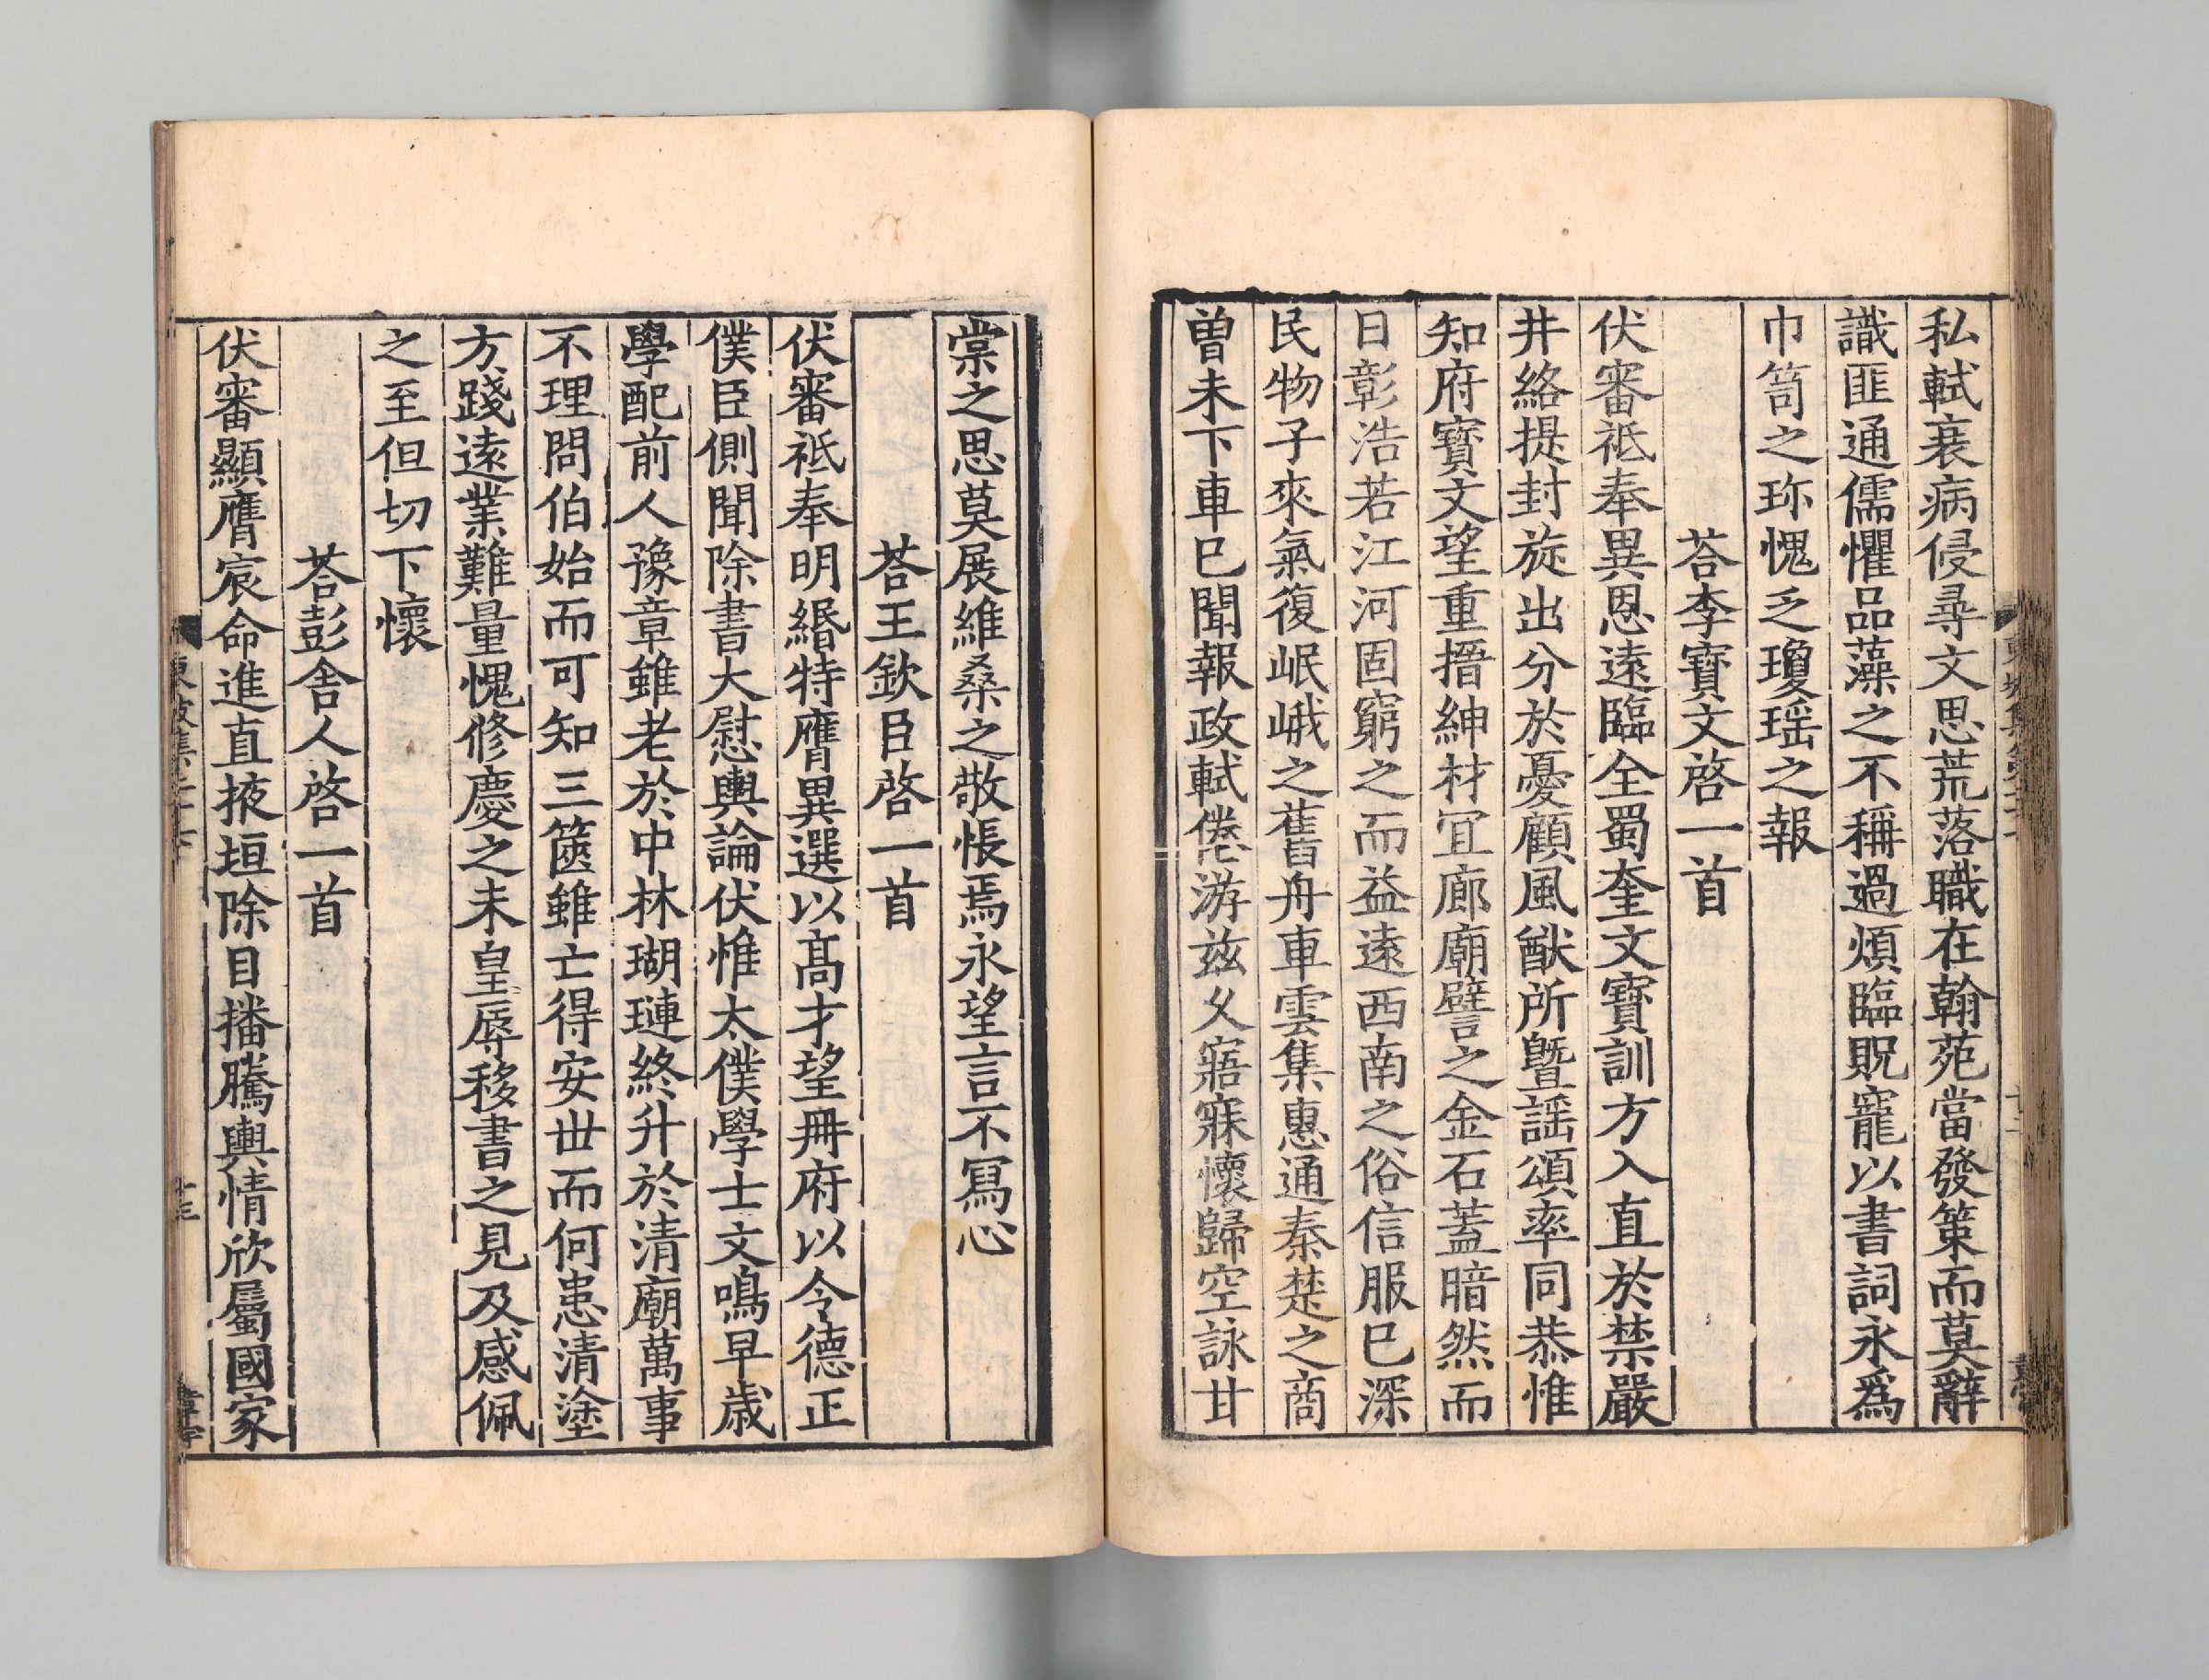 私軾衰病侵尋文思荒落職在翰苑當發策而莫辭
識匪通儒懼品藻之不稱過煩臨貺寵以書詞永爲
巾笥之珎愧乏瓊瑶之報
荅李寶文啓一首
伏審祗奉異恩遠臨全蜀奎文寶訓方入直於禁嚴
井絡提封旋出分於憂顧風猷所曁謡頌率同恭惟
知府寶文望重搢紳材冝廊廟譬之金石蓋暗然而
日彰浩若江河固窮之而益遠西南之俗信服已深
民物子來氣復岷峨之舊舟車雲集惠通秦楚之商
曽未下車已聞報政軾倦游兹乆寤寐懷歸空詠甘
棠之思莫展維桑之敬悵焉永望言不寫心
荅王欽臣啓一首
伏審祗奉明緡特膺異選以髙才望冊府以令德正
僕臣側聞除書大慰輿論伏惟太僕學士文鳴早歳
學配前人豫章雖老於中林瑚璉終升於清廟萬事
不理問伯始而可知三篋雖亡得安世而何患清塗
方踐遠業難量愧修慶之未皇辱移書之見及感佩
之至但切下懷
荅彭舎人啓一首
伏審顯膺宸命進直掖垣除目播騰輿情欣屬國家